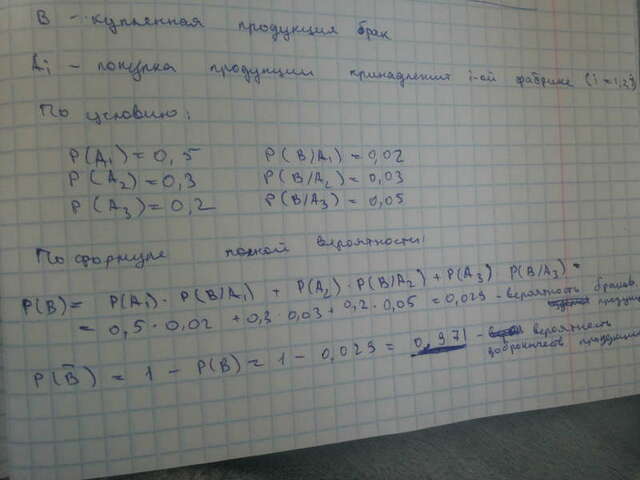 B - купленная продукция брак
Ai - покупка продукции принадлежит i-ой фабрике (i = 1,2,
По условию:
P(A₁) = 0,5 P(B/A₁) = 0,02
P(A₂) = 0,3 P(B/A₂) = 0,03
P(A₃) = 0,2 P(B/A₃) = 0,05
По формуле полной вероятности:
P(B) = P(A₁) · P(B/A₁) + P(A₂) · P(B/A₂) + P(A₃) P(B/A₃) =
= 0,5 · 0,02 + 0,3 · 0,03 + 0,2 · 0,05 = 0,029 - вероятность браков.
P(B̄) = 1 - P(B) = 1 - 0,029 = 0,971 - вероятность
продукции